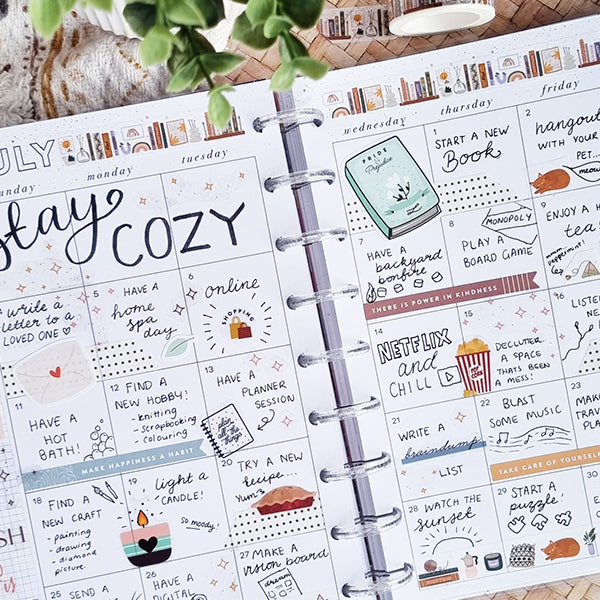 JULY
monday
tuesday
wednesday
thursday
friday
stay
COZY
write a
letter to a
LOVED ONE
5
HAVE A
home
spa
day
6
online
SHOPPING
11
HAVE A
HOT
BATH!
12
FIND A
NEW HOBBY!
- knitting
- scrapbooking
- colouring
13
HAVE A
PLANNER
SESSION
plan
all the
things
MAKE HAPPINESS A HABIT
18
FIND A
NEW CRAFT
- painting
- drawing
- diamond
picture
19
light a
CANDLE!
so moody!
20
TRY A NEW
recipe...
Yum
25
SEND A
26
HAVE A
DIGITAL
27
MAKE A
vision board
dream
PRIDE
&
Prejudice
1
START A NEW
Book
2
hangout
WITH YOUR
PET...
meow
7
HAVE A
backyard
bonfire
8
PLAY A
BOARD GAME
MONOPOLY
9
ENJOY A H
tea
peppermint!
THERE IS POWER IN KINDNESS
14
NETFLIX
and
CHILL
POP
CORN
15
DECLUTTER
A SPACE
THATS BEEN
A MESS!
16
LISTEN
NE
21
WRITE A
braindump
LIST
22
BLAST
SOME MUSIC
23
MAKE
TRAVEL
PLA
TAKE CARE OF YOURSELF
28
WATCH THE
sunset
29
START A
puzzle!
30